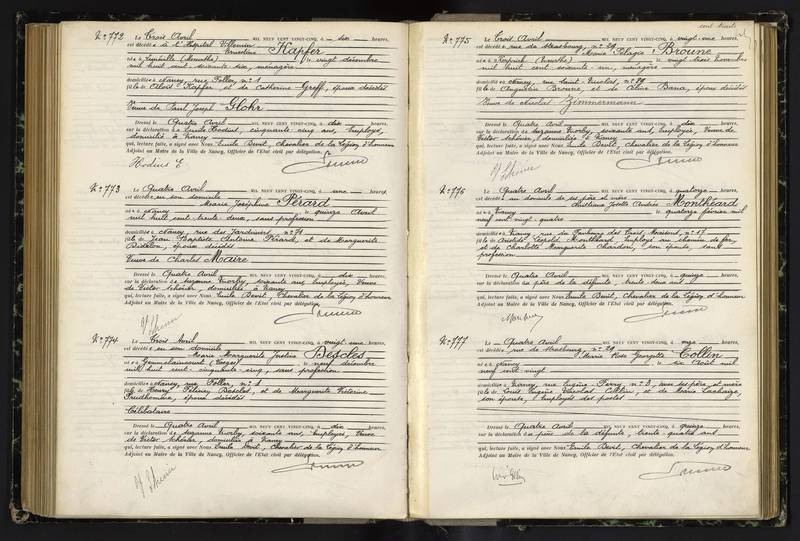 No 772 Le Trois Avril MIL NEUF CENT VINGT-CINQ, à dix heures,
est décédée à l'Hôpital Villemin
Ernestine Kapfer
née à Lunéville (Meurthe) le vingt décembre
mil huit cent soixante six, ménagère
domiciliée à Nancy, rue Foller, no 1
fille de Aloïs Kapfer et de Catherine Greff, époux décédés
Veuve de Paul Joseph Glohr
Dressé le Quatre Avril MIL NEUF CENT VINGT-CINQ, à dix heures,
sur la déclaration de Emile Hodiné, cinquante cinq ans, employé,
domicilié à Nancy
qui, lecture faite, a signé avec Nous Emile Bevit, Chevalier de la Légion d'honneur
Adjoint au Maire de la Ville de Nancy, Officier de l'Etat civil par délégation.
No 773 Le Quatre Avril MIL NEUF CENT VINGT-CINQ, à une heures,
est décédée en son domicile
Marie Joséphine Pérard
née à Nancy le quinze Avril
mil huit cent trente deux, sans profession
domiciliée à Nancy, rue des Jardiniers, no 71
fille de Jean Baptiste Antoine Pérard, et de Marguerite
époux décédés
Veuve de Charles Maire
Dressé le Quatre Avril MIL NEUF CENT VINGT-CINQ, à dix heures,
sur la déclaration de Suzanne soixante ans, employée, Veuve
de Victor domiciliée à Nancy
qui, lecture faite, a signé avec Nous Emile Bevit, Chevalier de la Légion d'honneur
Adjoint au Maire de la Ville de Nancy, Officier de l'Etat civil par délégation.
No 774 Le Trois Avril MIL NEUF CENT VINGT-CINQ, à vingt une heures,
est décédée en son domicile
Marie Marguerite Justine Bescles
née à (Vosges) le neuf décembre
mil huit cent cinquante cinq, sans profession
domiciliée à Nancy, rue Foller, no 1
fille de Henry et de Marguerite
Prudhomme, époux décédés
Célibataire
Dressé le Quatre Avril MIL NEUF CENT VINGT-CINQ, à dix heures,
sur la déclaration de Suzanne soixante ans, employée, Veuve
de Victor domiciliée à Nancy
qui, lecture faite, a signé avec Nous Emile Bevit, Chevalier de la Légion d'honneur
Adjoint au Maire de la Ville de Nancy, Officier de l'Etat civil par délégation.
No 775 Le Trois Avril MIL NEUF CENT VINGT-CINQ, à vingt une heures,
est décédée rue de Strasbourg, no 29
Marie Pélagie Broune
née à (Meurthe) le vingt trois novembre
mil huit cent soixante un, ménagère
domiciliée à Nancy, rue Saint Nicolas, no 29
fille de Augustin Broune, et de Céline Bana, époux décédés
Veuve de Nicolas Zimmermann
Dressé le Quatre Avril MIL NEUF CENT VINGT-CINQ, à dix heures,
sur la déclaration de Suzanne soixante ans, employée, Veuve de
Victor domiciliée à Nancy
qui, lecture faite, a signé avec Nous Emile Bevit, Chevalier de la Légion d'honneur
Adjoint au Maire de la Ville de Nancy, Officier de l'Etat civil par délégation.
No 776 Le Quatre Avril MIL NEUF CENT VINGT-CINQ, à quatorze heures,
est décédée au domicile de ses père et mère
Christiane Josette Andrée Monthéard
née à Nancy le quatorze février mil
neuf cent vingt quatre
domiciliée à Nancy, rue du Faubourg des Trois Maisons, no 17
fille de Aristide Léopold Monthéard, employé au chemin de fer,
et de Charlotte Marguerite Chardon, son épouse, sans
profession
Dressé le Quatre Avril MIL NEUF CENT VINGT-CINQ, à quinze heures,
sur la déclaration du père de la défunte, trente deux ans
qui, lecture faite, a signé avec Nous Emile Bevit, Chevalier de la Légion d'honneur
Adjoint au Maire de la Ville de Nancy, Officier de l'Etat civil par délégation.
No 777 Le Quatre Avril MIL NEUF CENT VINGT-CINQ, à onze heures,
est décédée rue de Strasbourg, no 29
Marie Rose Georgette Collin
née à Nancy le six Août mil
neuf cent vingt
domiciliée à Nancy, rue Eugène Ferry, no 3, avec ses père et mère
fille de Louis Eugène Nicolas Collin, et de Marie
son épouse, employés des postes
Dressé le Quatre Avril MIL NEUF CENT VINGT-CINQ, à quinze heures,
sur la déclaration du père de la défunte, trente quatre ans
qui, lecture faite, a signé avec Nous Emile Bevit, Chevalier de la Légion d'honneur
Adjoint au Maire de la Ville de Nancy, Officier de l'Etat civil par délégation.